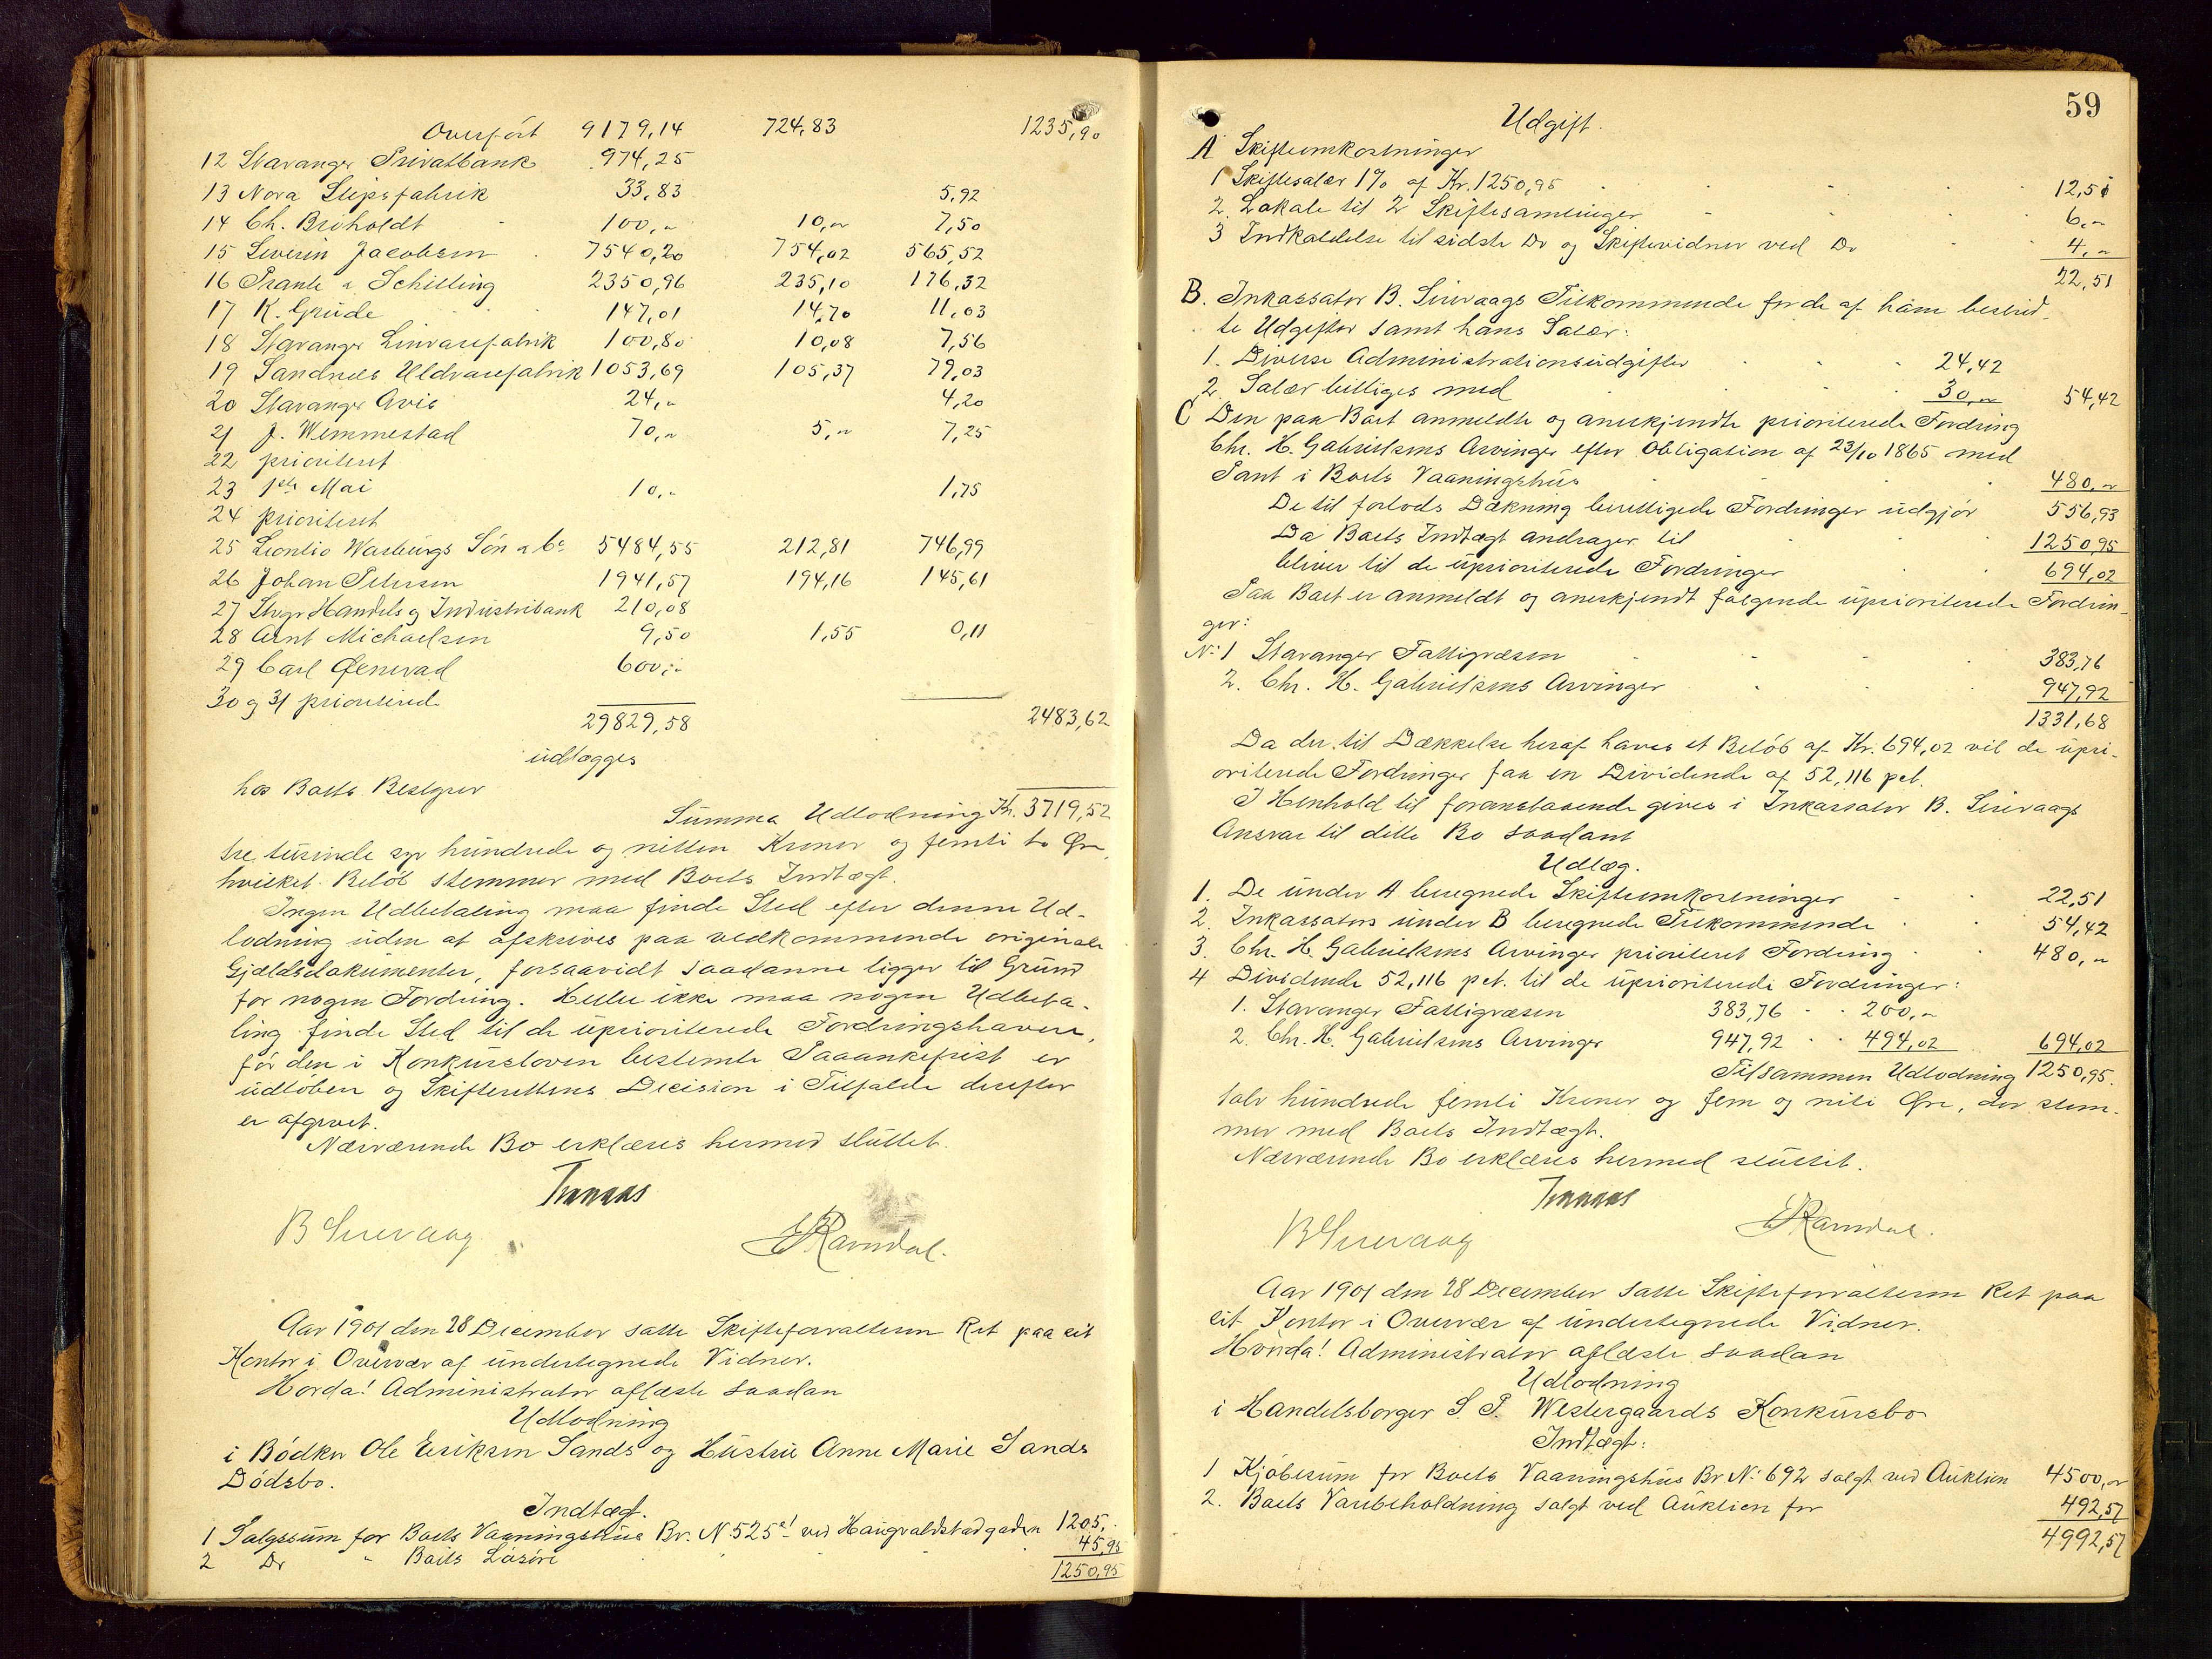 Overført 9179,14 724,83 1235,90
12 Stavanger Privatbank 974,25
13 Nora Slipsfabrik 33,83 5,92
14 Ch. Broholdt 100,- 10,- 7,50
15 Severin Jacobsen 7540,20 754,02 565,52
16 & Schilling 2350,96 235,10 176,32
17 K. Grude 147,01 14,70 11,03
18 Stavanger Linvarefabrik 100,80 10,08 7,56
19 Sandnes Uldvarefabrik 1053,69 105,37 79,03
20 Stavanger Avis 24,- 4,20
21 J. Wimmestad 70,- 5,- 7,25
22 prioriteret
23 1ste Mai 10,- 1,75
24 prioriteret
25 Warburgs Søn & Co 5484,55 212,81 746,99
26 Johan Petersen 1941,57 194,16 145,61
27 Stvgr Handels og Industribank 210,08
28 Arnt Michaelsen 9,50 1,55 0,11
29 Carl Qvenvad 600,-
30 og 31 prioriterede
29829,58 2483,62
udlægges
hos Boets Bestyrer
Summa Udlodning Kr. 3719,52
tre tusinde syv hundrede og nitten Kroner og femti to Øre,
hvilket Beløb stemmer med Boets Indtægt.
Ingen Udbetaling maa finde Sted efter denne Ud-
lodning uden at afskrives paa vedkommende originale
Gjældsdokumenter, forsaavidt saadanne ligger til Grund
for nogen Fordring. Heller ikke maa nogen Udbeta-
ling finde Sted til de uprioriterede Fordringshavere,
før den i Konkursloven bestemte Paaankefrist er
udløben og Skifterettens Decision i Tilfælde derefter
er afgivet.
Nærværende Bo erklæres hermed sluttet.
B Sirevaag Ramdal.
Aar 1901 den 28 December satte Skifteforvalteren Ret paa sit
Kontor i Overvær af undertegnede Vidner.
Hvorda! Administrator aflæste saadan
Udlodning
i Bødker Ole Eriksen Sands og Hustru Anne Marie Sands
Dødsbo.
Indtægt.
1 Salgssum for Boets Vaaningshus Br. No 525 ved Haugvaldstadgaden 1205,-
2 Do " Boets Løsøre 45,95
1250,95
59
Udgift.
A Skifteomkostninger
1 Skiftesalær 1% af Kr. 1250,95 12,51
2. Lokale til 2 Skiftesamlinger 6,-
3 Indkaldelse til sidste Do og Skiftevidner ved Do 4,-
22,51
B. Inkassator B. Sirevaags Tilkommende for de af ham bestrid-
te Udgifter samt hans Salær:
1. Diverse Administrationsudgifter 24,42
2. Salær billiges med 30,- 54,42
C Den paa Boet anmeldte og anerkjendte prioriterede Fordring
Chr. H. Gabrielsens Arvinger efter Obligation af 23/10 1865 med
Pant i Boets Vaaningshus 480,-
De til forlods Dækning berettigede Fordringer udgjør 556,93
Da Boets Indtægt andrager til 1250,95
bliver til de uprioriterede Fordringer 694,02
Paa Boet er anmeldt og anerkjendt følgende uprioriterede Fordrin-
ger:
No 1 Stavanger Fattigvæsen 383,76
2. Chr. H. Gabrielsens Arvinger 947,92
1331,68
Da der til Dækkelse heraf haves et Beløb af Kr. 694,02 vil de upri-
oriterede Fordringer faa en Dividende af 52,116 pct.
I Henhold til foranstaaende gives i Inkassator B. Sirevaags
Ansvar til dette Bo saadant
Udlæg.
1. De under A beregnede Skifteomkostninger 22,51
2. Inkassators under B beregnede Tilkommende 54,42
3. Chr. H. Gabrielsens Arvinger prioriteret Fordring 480,-
4 Dividende 52,116 pct. til de uprioriterede Fordringer:
1. Stavanger Fattigvæsen 383,76 200,-
2. Chr. H. Gabrielsens Arvinger 947,92 494,02 694,02
Tilsammen Udlodning 1250,95.
tolv hundrede femti Kroner og fem og niti Øre, der stem-
mer med Boets Indtægt.
Nærværende Bo erklæres hermed sluttet.
B Sirevaag Ramdal.
Aar 1901 den 28 December satte Skifteforvalteren Ret paa
sit Kontor i Overvær af undertegnede Vidner.
Hvorda! Administrator aflæste saadan
Udlodning
i Handelsborger S. P. Westergaards Konkursbo
Indtægt:
1 Kjøbesum for Boets Vaaningshus Br No 692 solgt ved Auktion 4500,-
2. Boets Varebeholdning solgt ved Auktion for 492,57
4992,57